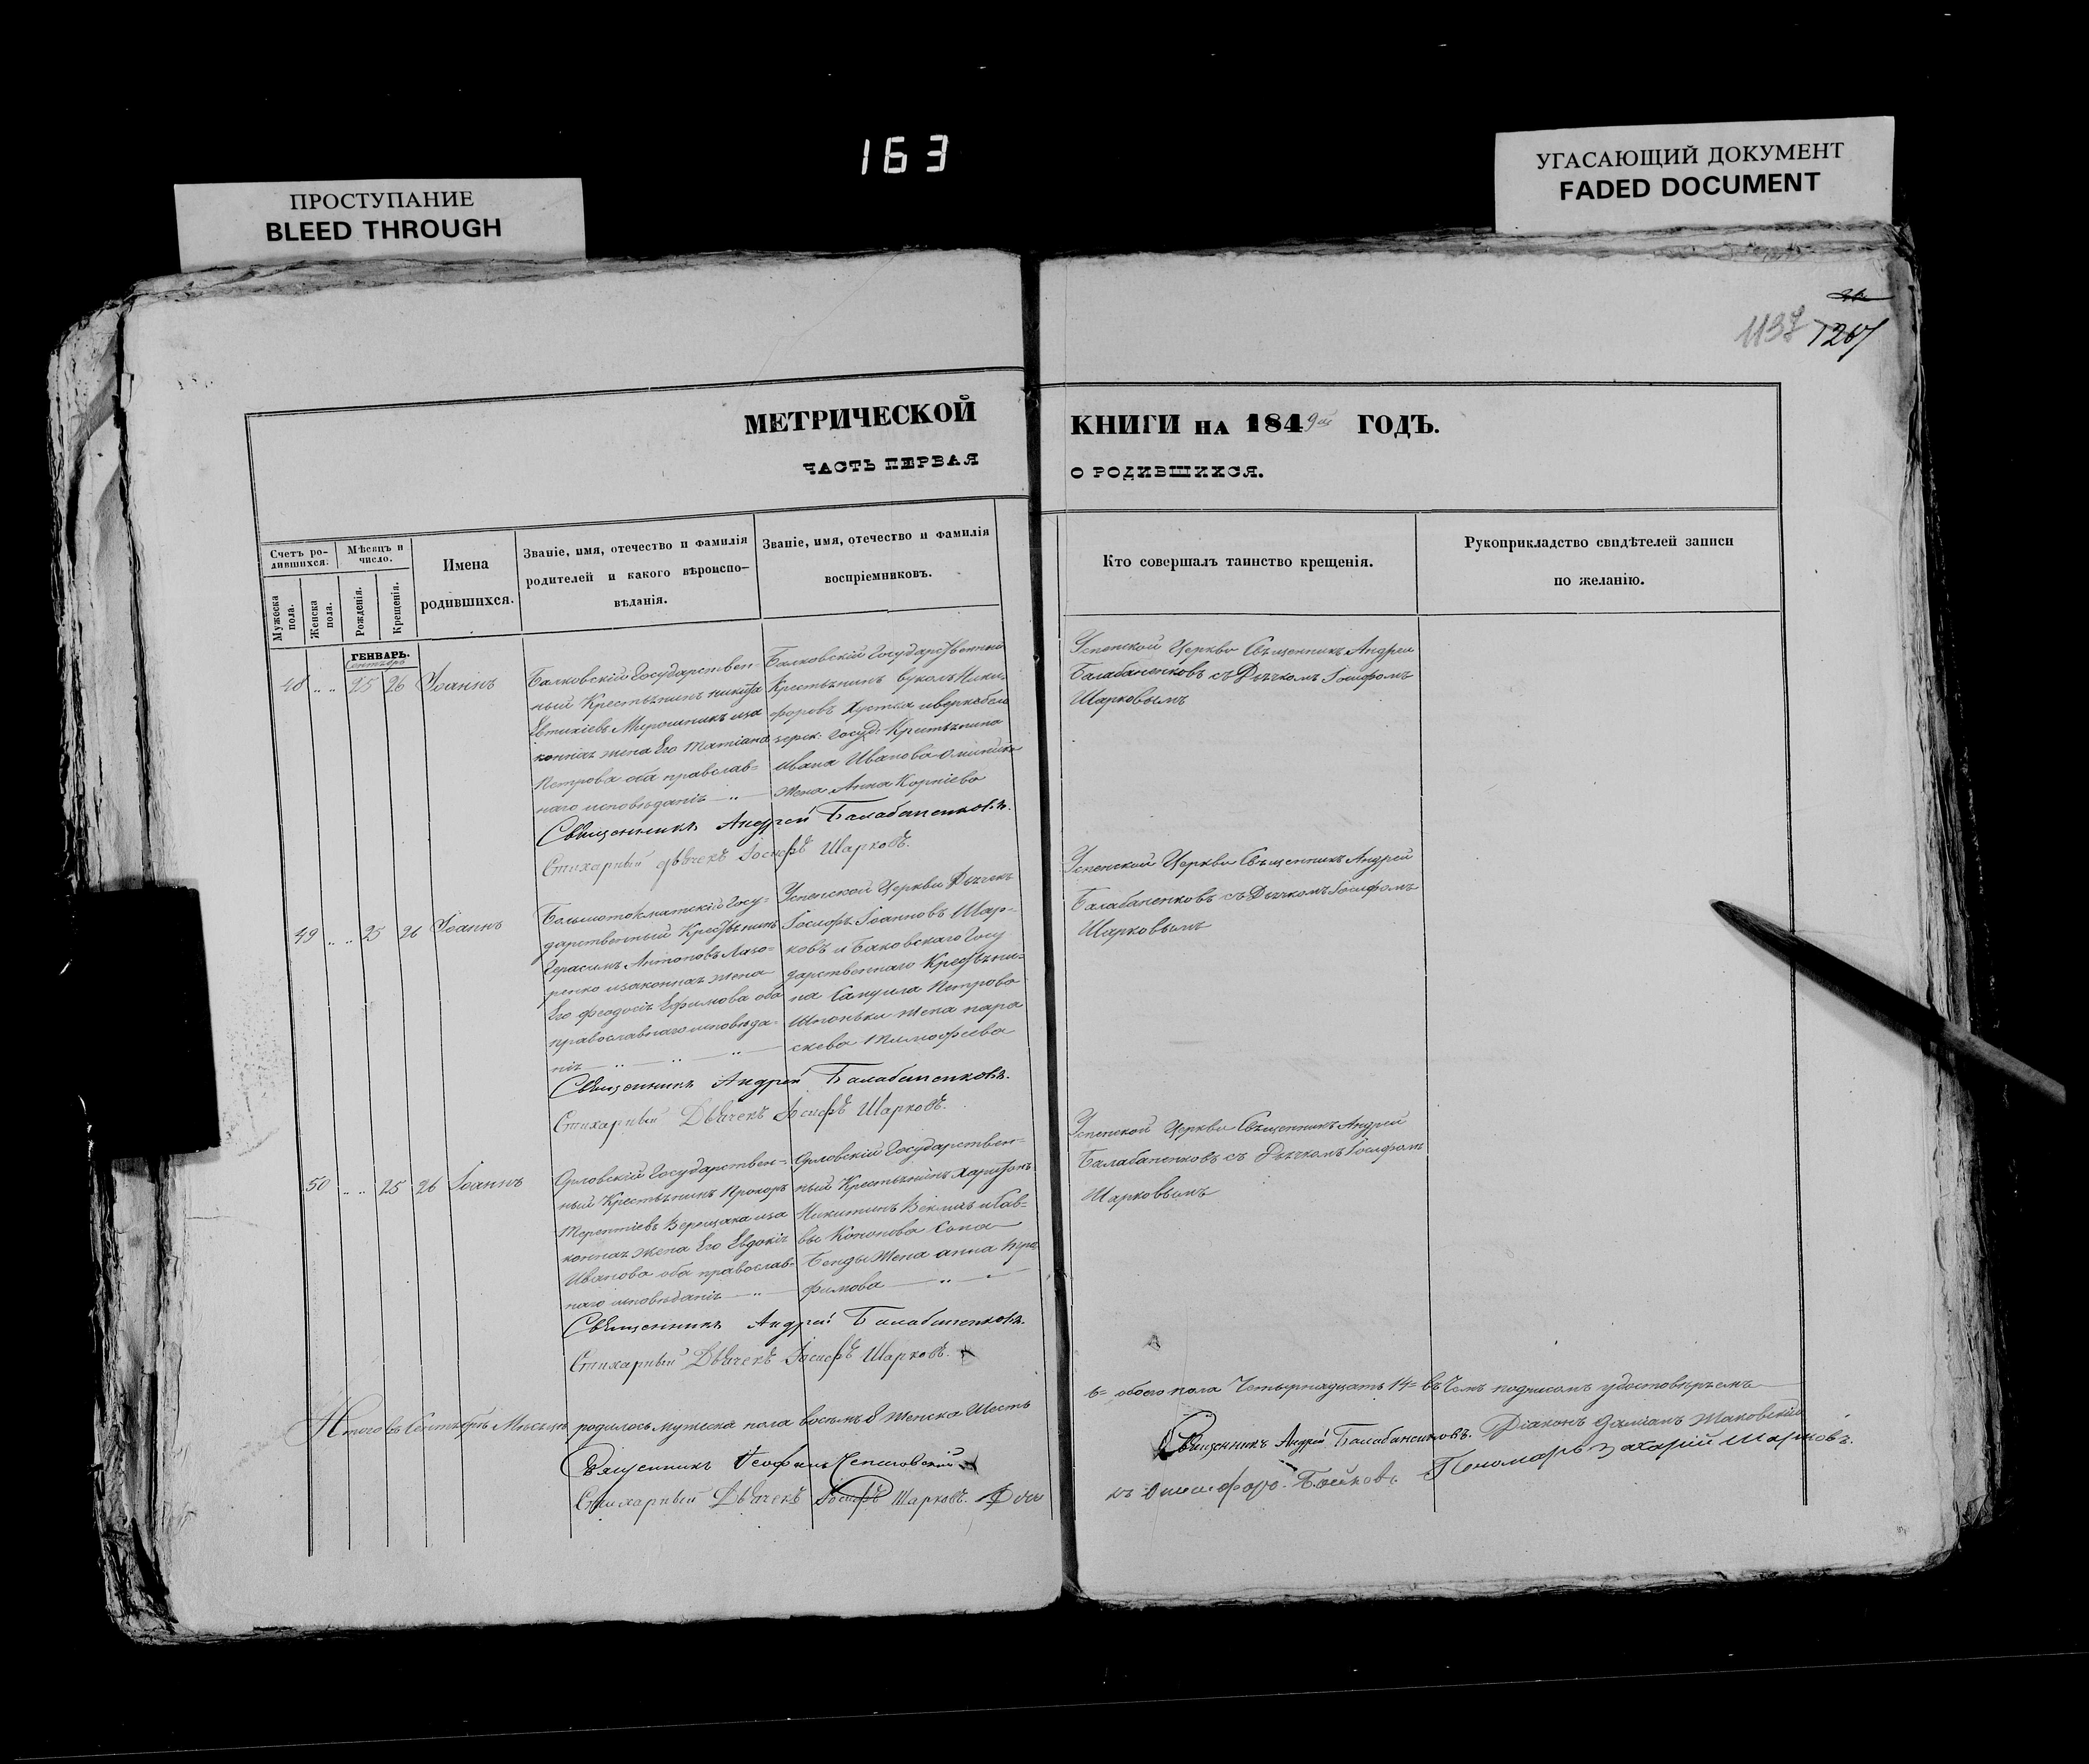 163
ПРОСТУПАНИЕ
BLEED THROUGH
УГАСАЮЩИЙ ДОКУМЕНТ
FADED DOCUMENT
1137 1267
МЕТРИЧЕСКОЙ
ЧАСТЬ ПЕРВАЯ
КНИГИ НА 1849 ГОДЪ.
О РОДИВШИХСЯ.
Счетъ ро-
дившихся.
Мужеска пола.
Женска пола.
Мѣсяцъ и
число.
Рожденія.
Крещенія.
Имена
родившихся.
Званіе, имя, отечество и фамилія
родителей и какого вѣроиспо-
вѣданія.
Званіе, имя, отечество и фамилія
воспріемниковъ.
Кто совершалъ таинство крещенія.
Рукоприкладство свидѣтелей записи
по желанію.
ГЕНВАРЬ.
Сентябрь
48 .. .. 25 26 Іоаннъ
Балковскій Государствен-
ный Крестьянинъ Никита
Евтихіевъ Мирошникъ иза
конная жена Его Татіана
Петрова оба православ-
наго исповѣданія
Балковскій Государственный
Крестьянинъ Вуколъ Ники-
форовъ Хустка
зерск: Госуд: Крестьянина
Ивана Иванова
жена Анна Корніева
Священникъ Андрей Балабаненковъ.
Стихарный Дьячекъ Іосифъ Шарковъ.
Успенской Церкви Священникъ Андрей
Балабаненковъ съ Дьячкомъ Іосифомъ
Шарковымъ
49 .. .. 25 26 Іоаннъ
Большотокматскій Госу-
дарственный Крестьянинъ
Герасимъ Антоновъ Лазо-
ренко изаконная жена
Его Феодосія Ефимова оба
православнаго исповѣда-
нія
Успенской Церкви Дьячекъ
Іосифъ Іоанновъ Шар-
ковъ и Балковскаго Госу
дарственнаго Крестьяни-
на Самуила Петрова
Шпоньки жена Пара
скева Тимофеева
Священникъ Андрей Балабаненковъ.
Стихарный Дьячекъ Іосифъ Шарковъ.
Успенской Церкви Священникъ Андрей
Балабаненковъ съ Дьячкомъ Іосифомъ
Шарковымъ
50 .. .. 25 26 Іоаннъ
Орловскій Государствен-
ный Крестьянинъ Прохоръ
Терентіевъ Верещака иза
конная жена Его Евдокія
Иванова оба православ-
наго исповѣданія
Орловскій Государствен-
ный Крестьянинъ Харитонъ
Никитинъ Векличъ и Сав-
вы Кононова Сына
Бенды жена Анна
фимова
Священникъ Андрей Балабаненковъ.
Стихарный Дьячекъ Іосифъ Шарковъ.
Успенской Церкви Священникъ Андрей
Балабаненковъ съ Дьячкомъ Іосифомъ
Шарковымъ
Итого въ Сентябрѣ Мѣсяцѣ родилось мужеска пола восьмъ 8 женска Шесть
6= обоего пола Четырнадцать 14= въ чемъ подписомъ удостовѣряемъ
Священникъ Феофилъ
Священникъ Андрей Балабаненковъ. Діаконъ Даміанъ Маковскій
Стихарный Дьячекъ Іосифъ Шарковъ.
Бойковъ. Пономарь Захарій Шарковъ.